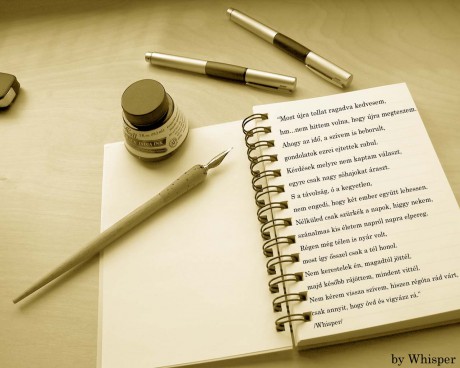 "Most újra tollat ragadva kedvesem,
hm...nem hittem volna, hogy újra megteszem.
Ahogy az idő, a szívem is beborult,
gondolatok ezrei ejtettek rabul.
Kérdések melyre nem kaptam választ,
egyre csak nagy sóhajokat áraszt.
S a távolság, ó a kegyetlen,
nem engedi, hogy két ember együtt lehessen.
Nélküled csak szürkék a napok, higgy nekem,
szánalmas kis életem napról napra elpereg.
Régen még télen is nyár volt,
most így ősszel csak a tél honol.
Nem kerestelek én, magadtól jöttél,
majd később rájöttem, mindent vittél.
Nem kérem vissza szívem, hiszen régóta rád várt,
csak annyit, hogy óvd és vigyázz rá."
/Whisper/
by Whisper